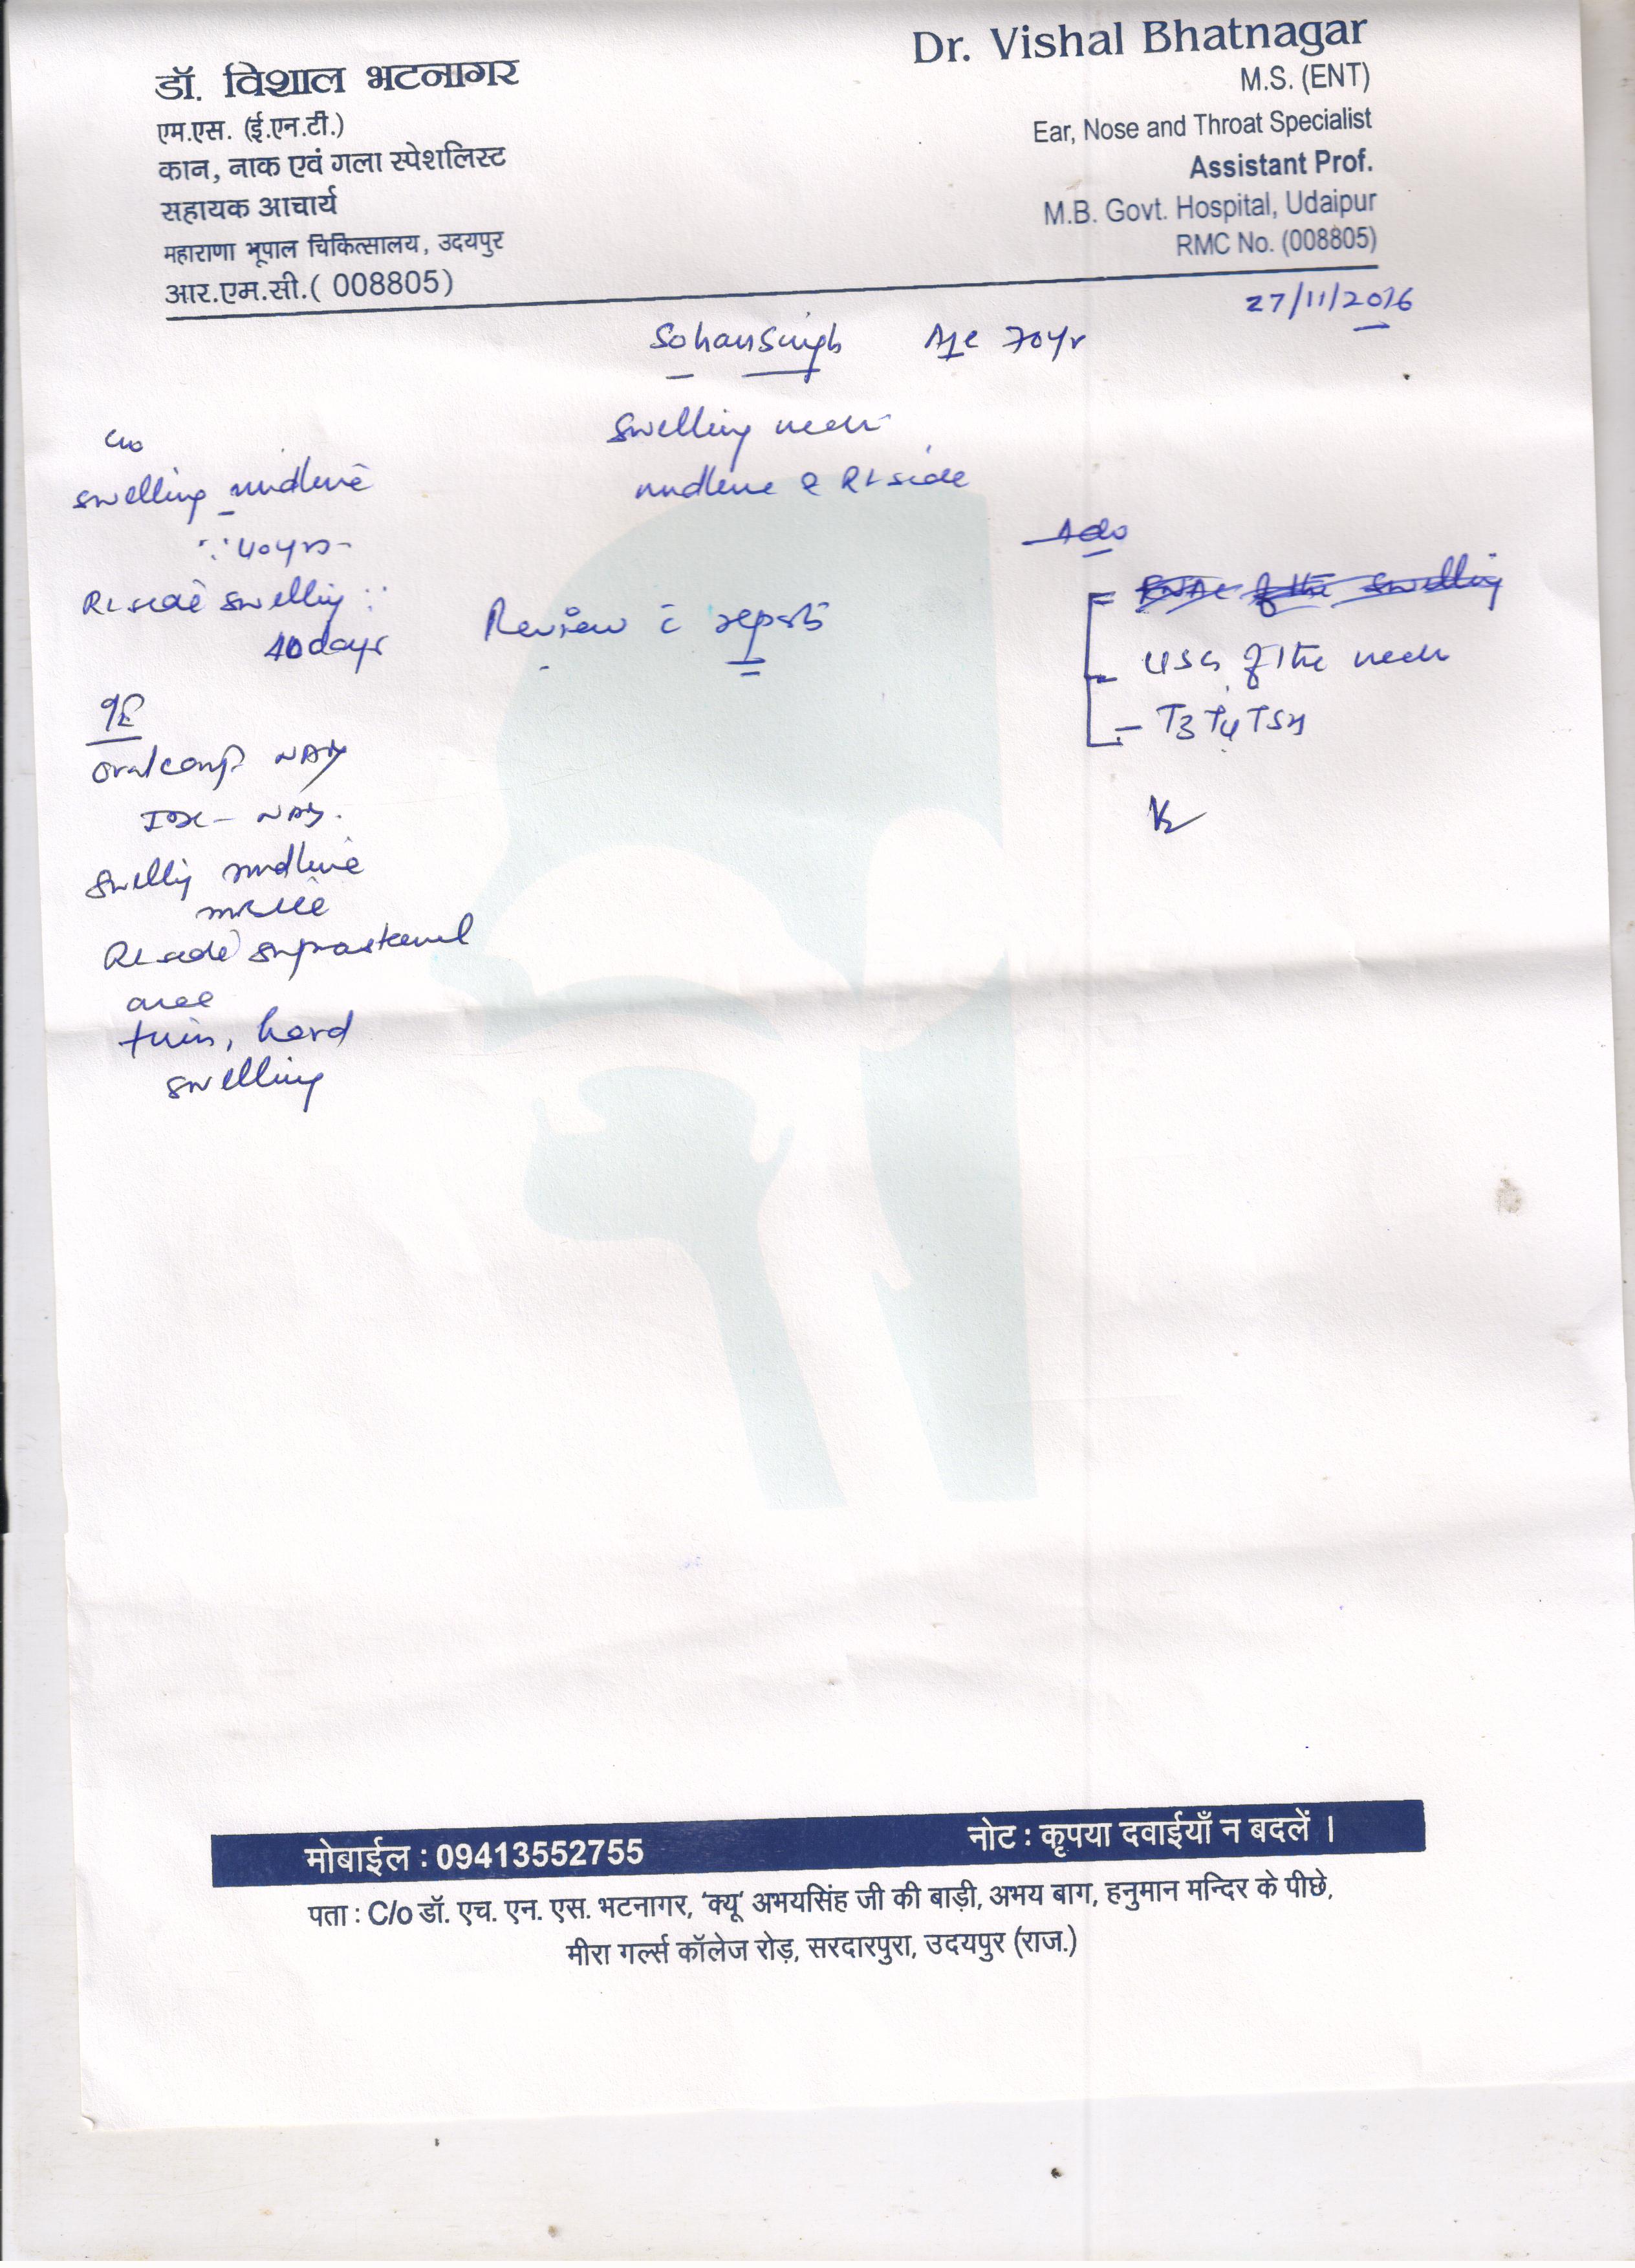 डॉ. विशाल भटनागर
एम.एस. (ई.एन.टी.)
कान, नाक एवं गला स्पेशलिस्ट
सहायक आचार्य
महाराणा भूपाल चिकित्सालय, उदयपुर
आर.एम.सी.( 008805)
Dr. Vishal Bhatnagar
M.S. (ENT)
Ear, Nose and Throat Specialist
Assistant Prof.
M.B. Govt. Hospital, Udaipur
RMC No. (008805)
27/11/2016
Sohansingh Age 70yr
swelling neck
midline & Rt side
c/o
swelling midline
40yrs
Rt side swelling
40 days
Review c reports
Adv
FNAC of the swelling
USG of the neck
T3 T4 TSH
O/E
Oral cavity NAD
NAD
swelling midline
Rt side suprasternal
area
firm, hard
swelling
मोबाईल : 09413552755
नोट : कृपया दवाईयाँ न बदलें ।
पता : C/o डॉ. एच. एन. एस. भटनागर, ‘क्यू’ अभयसिंह जी की बाड़ी, अभय बाग, हनुमान मन्दिर के पीछे,
मीरा गर्ल्स कॉलेज रोड़, सरदारपुरा, उदयपुर (राज.)